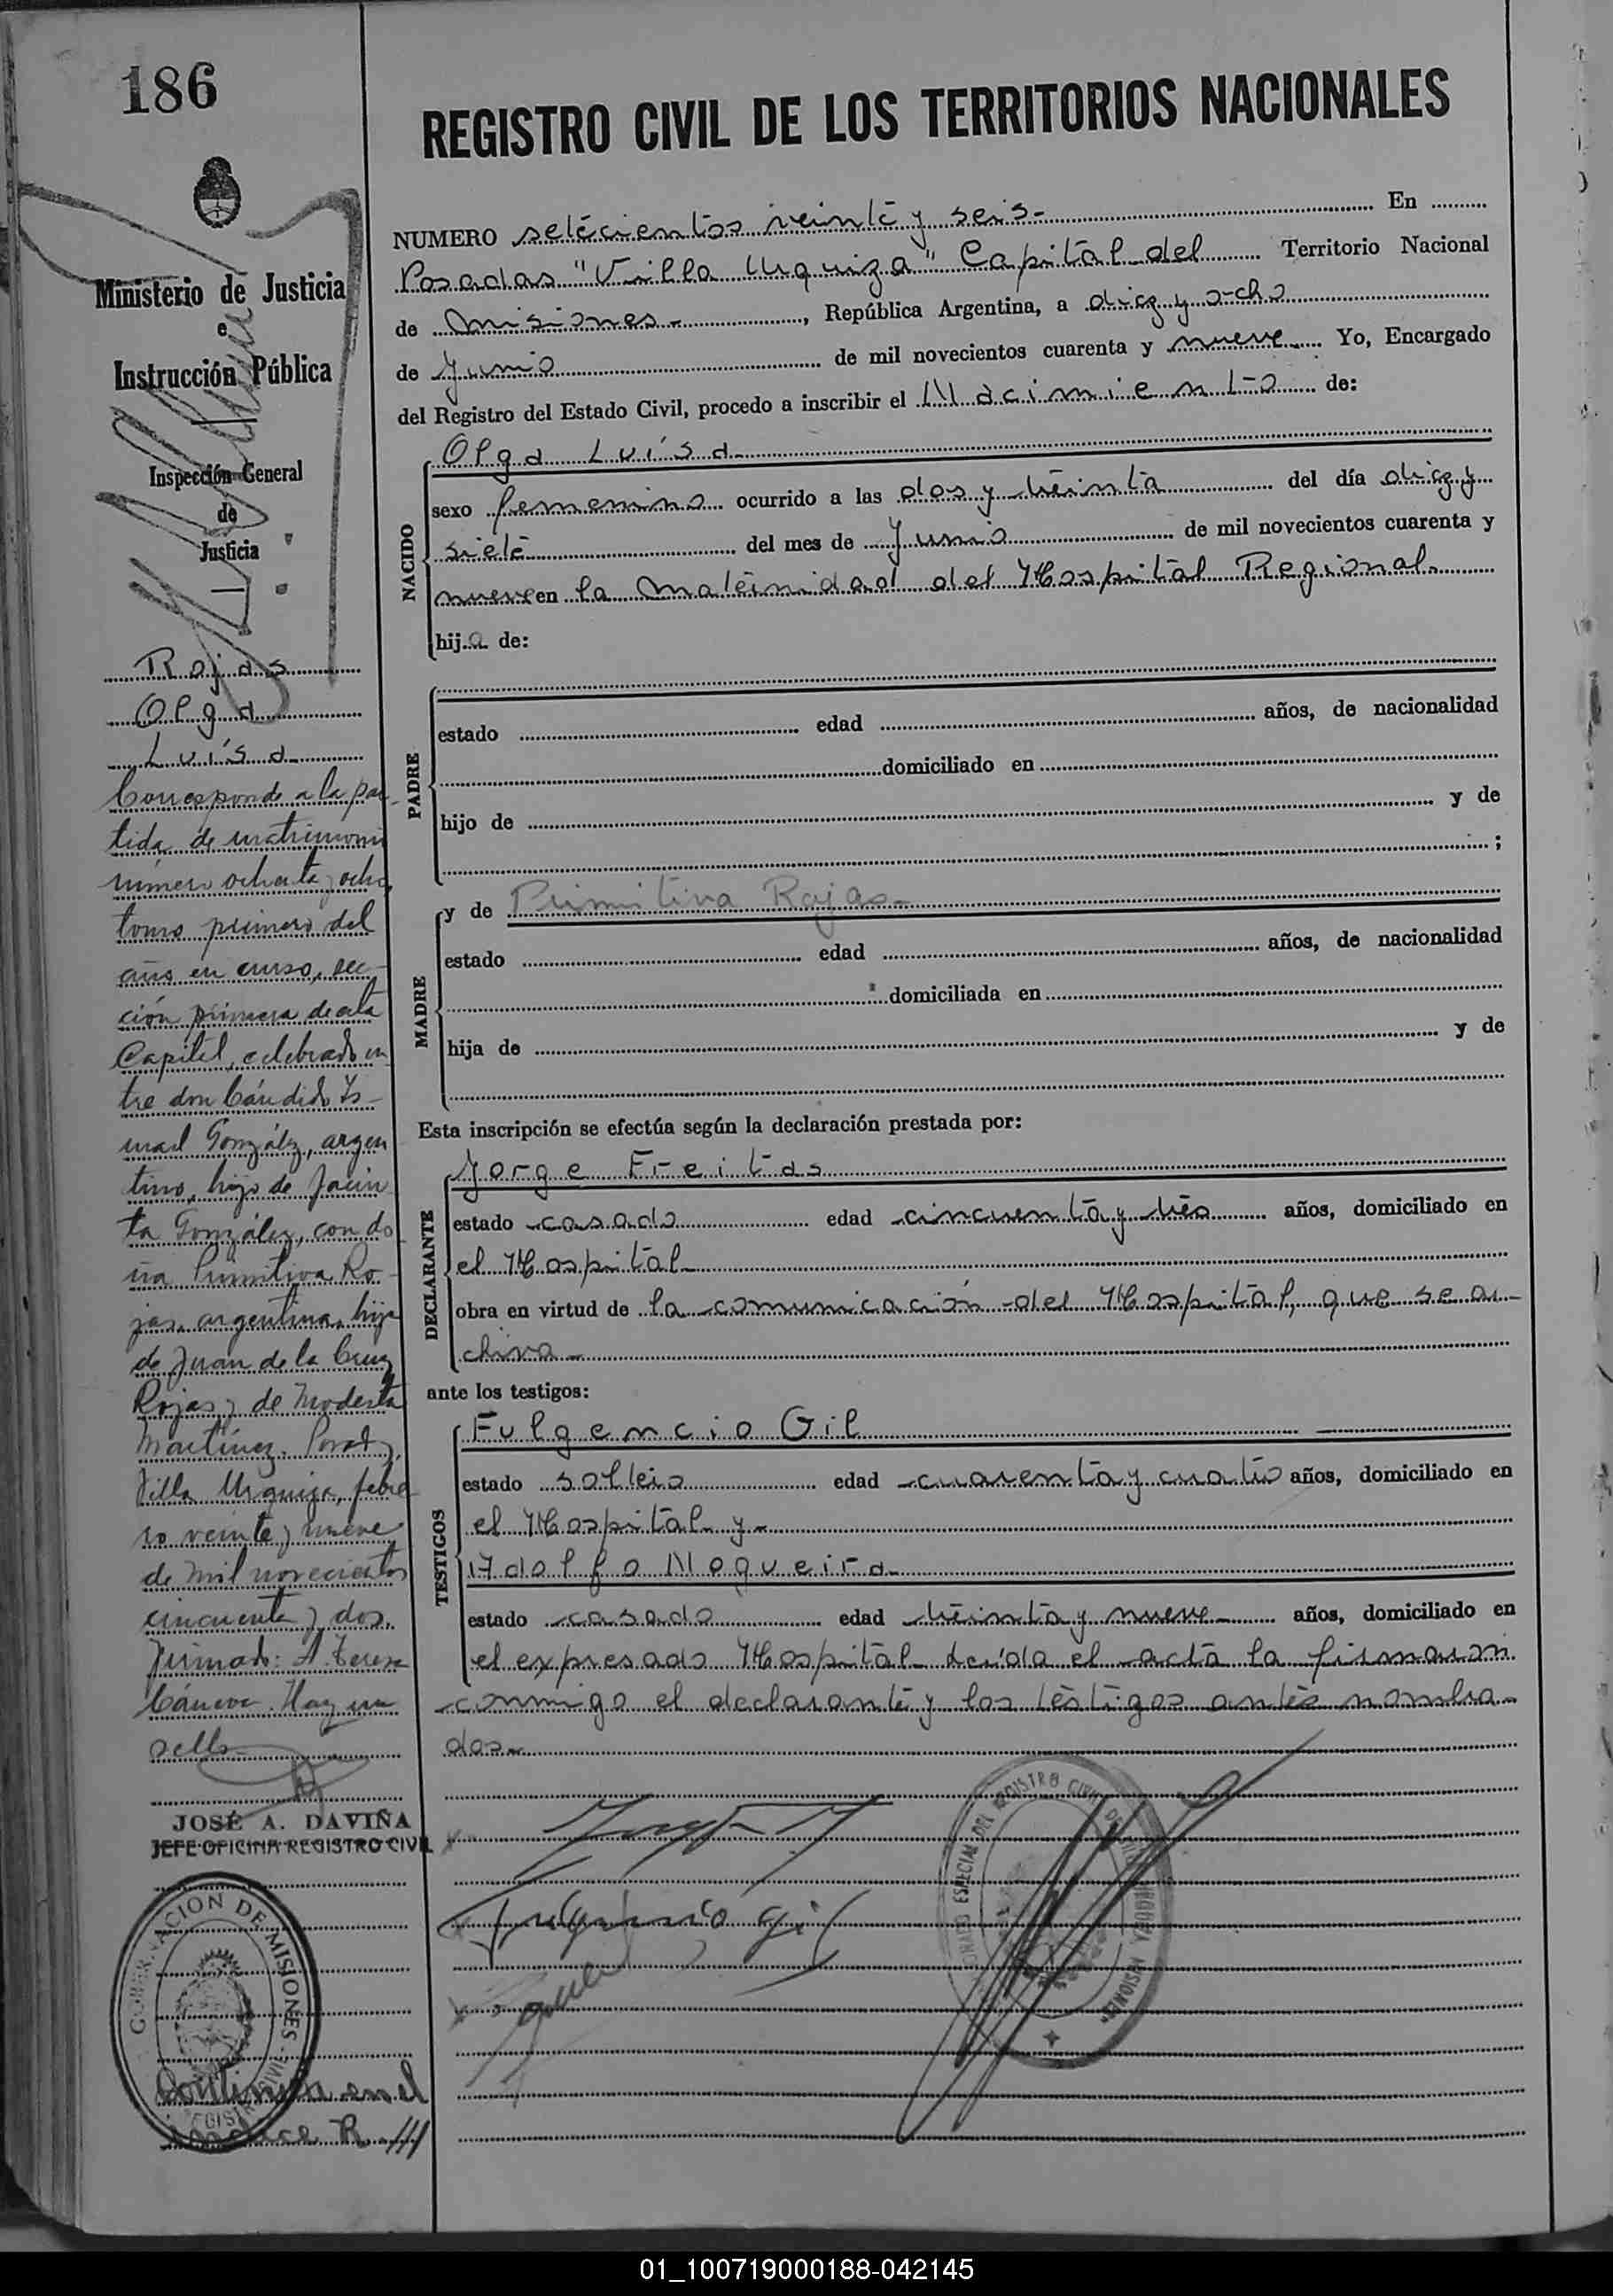 186
REGISTRO CIVIL DE LOS TERRITORIOS NACIONALES
Ministerio de Justicia
e
Instrucción Pública
Inspección General
de
Justicia
Rojas
Olga
Luisa
Corresponde a la par-
tida de matrimonio
número ochenta y ocho,
tomo primero del
año en curso, sec-
ción primera de esta
Capital, celebrado en
tre don Cándido Is-
mael González, argen
tino, hijo de Jacin
ta González, con do
ña Primitiva Ro-
jas, argentina, hija
de Juan de la Cruz
Rojas y de Modesta
Martínez. Posadas,
Villa Urquiza, febre
ro veinte y nueve
de mil novecientos
cincuenta y dos.
Firmado: A. Teresa
Cáneva. Hay un
sello
JOSÉ A. DAVIÑA
JEFE OFICINA REGISTRO CIVIL
GOBERNACION DE MISIONES
REGISTRO CIVIL
Continua en el
indice R. ///
NUMERO setecientos veinte y seis- En
Posadas "Villa Urquiza" Capital del Territorio Nacional
de Misiones-, República Argentina, a diez y ocho
de Junio de mil novecientos cuarenta y nueve Yo, Encargado
del Registro del Estado Civil, procedo a inscribir el Nacimiento de:
NACIDO
Olga Luisa-
sexo femenino ocurrido a las dos y treinta del día diez y
siete del mes de Junio de mil novecientos cuarenta y
nueve en la Maternidad del Hospital Regional.
hija de:
PADRE
estado edad años, de nacionalidad
domiciliado en
hijo de y de
;
MADRE
y de Primitiva Rojas-
estado edad años, de nacionalidad
domiciliada en
hija de y de
Esta inscripción se efectúa según la declaración prestada por:
DECLARANTE
Jorge Freitas
estado casado edad cincuenta y tres años, domiciliado en
el Hospital-
obra en virtud de la comunicación del Hospital, que se ar-
chiva-
ante los testigos:
TESTIGOS
Fulgencio Gil
estado soltero edad cuarenta y cuatro años, domiciliado en
el Hospital y-
Adolfo Nogueira-
estado casado edad treinta y nueve años, domiciliado en
el expresado Hospital- Leída el acta la firmaron
conmigo el declarante y los testigos antes nombra-
dos-
Fulgencio Gil
ESPECIAL DEL REGISTRO CIVIL DE VILLA URQUIZA MISIONES
01_100719000188-042145